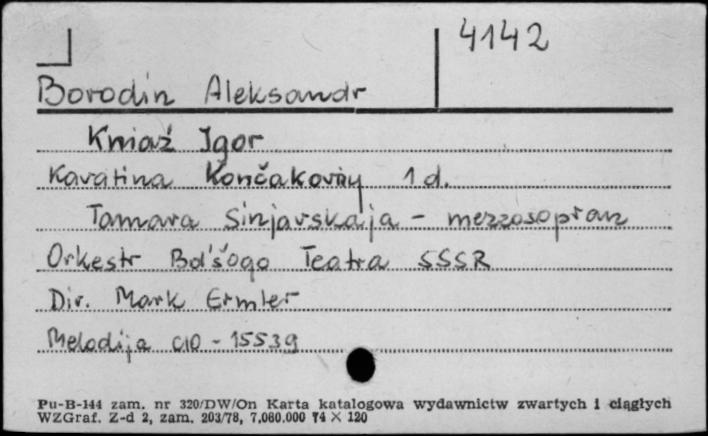 4142
Borodin Aleksandr
Kniaź Igor
Kavatina Končakovny 1 d.
Tamara Sinjavskaja - mezzosopran
Orkestr Bol'šogo Teatra SSSR
Dir. Mark Ermler
Melodija C10 - 15539
Pu-B-144 zam. nr 320/DW/On Karta katalogowa wydawnictw zwartych i ciągłych
WZGraf. Z-d 2, zam. 203/78, 7.000.000 74 × 120